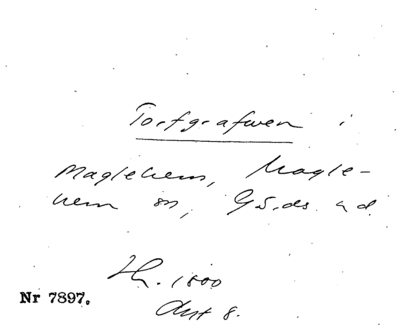 Torfgrafven i
Maglehem, Magle-
hem sn, Gärds hd.
1800
Nr 7897.